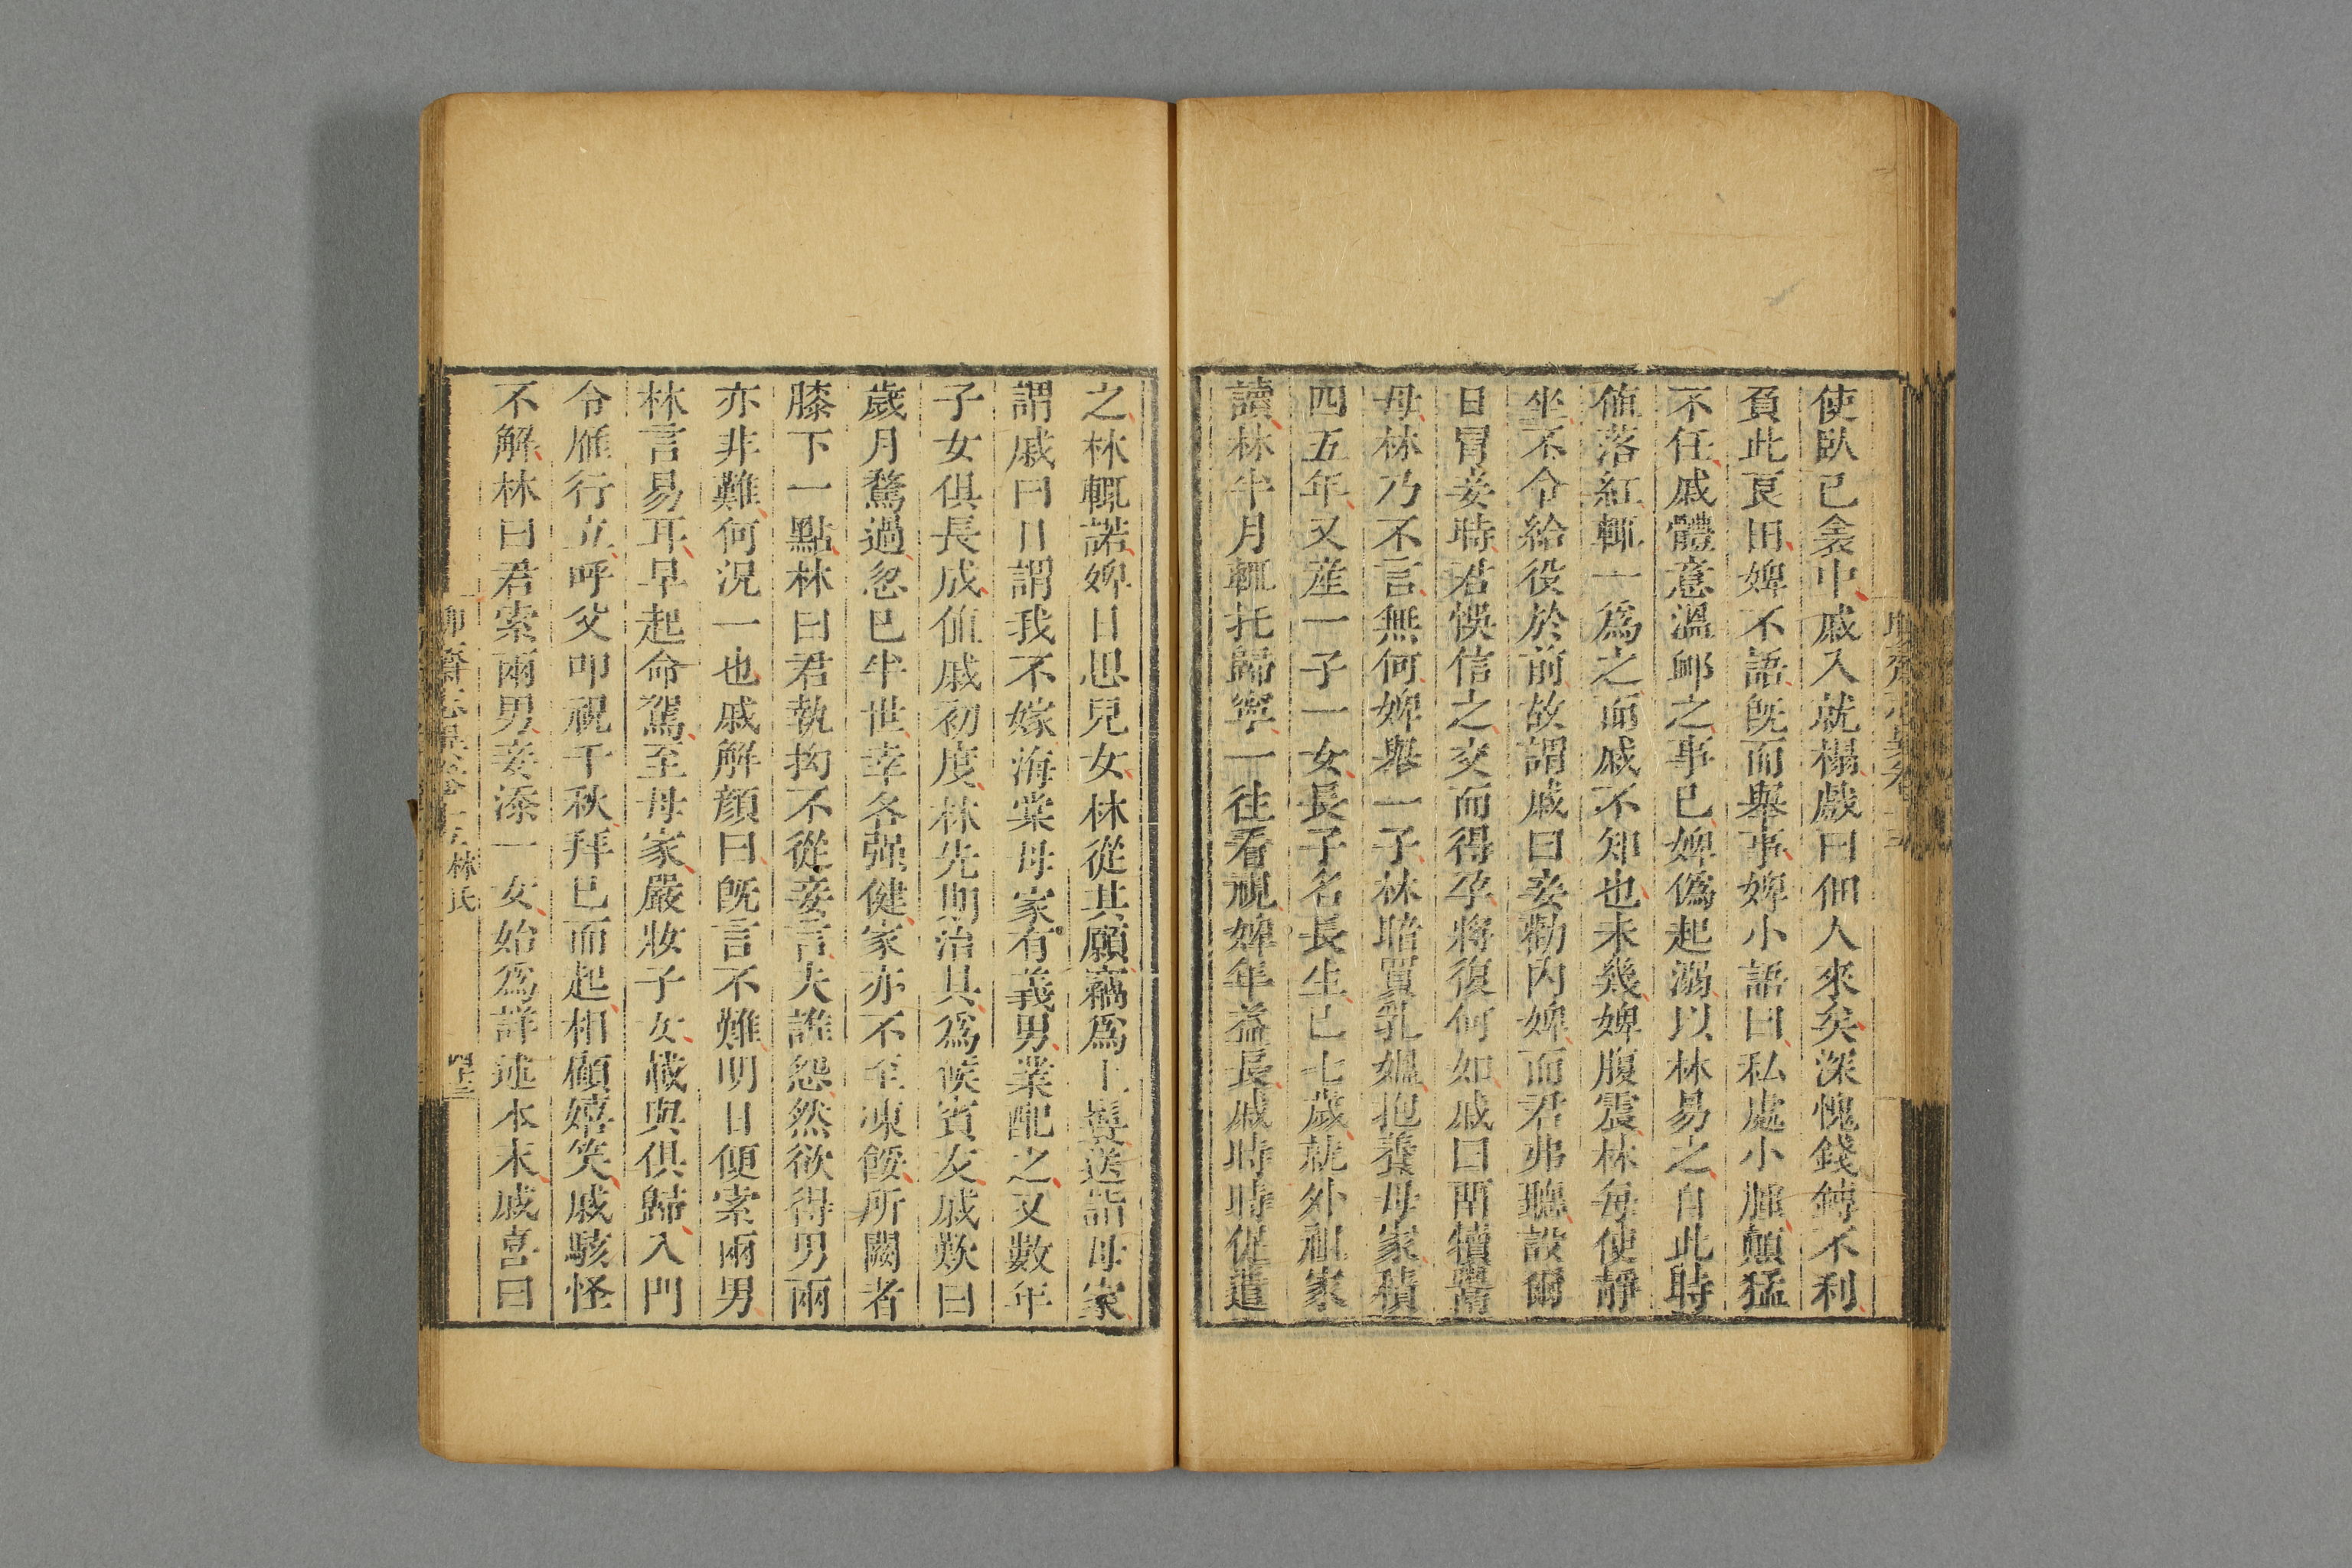 使臥已衾中戚入就榻戲曰佃人來矣深愧錢鎛不利
負此良田婢不語既而舉事婢小語曰私處小腫顛猛
不任戚體意溫卹之事已婢僞起溺以林易之自此時
值落紅輒一爲之而戚不知也未幾婢腹震林每使靜
坐不令給役於前故謂戚曰妾勸內婢而君弗聽設爾
日冒妾時君悞信之交而得孕將復何如戚曰留犢鬻
母林乃不言無何婢舉一子林暗買乳媼抱養母家積
四五年又產一子一女長子名長生已七歲就外祖家
讀林半月輒托歸寧一往看視婢年益長戚時時促遣
之林輒諾婢日思兒女林從其願竊爲上鬟送詣母家
謂戚曰日謂我不嫁海棠母家有義男業配之又數年
子女俱長成值戚初度林先期治具爲候賓友戚歎曰
歲月騖過忽已半世幸各强健家亦不至凍餒所闕者
膝下一點林曰君執拗不從妾言夫誰怨然欲得男兩
亦非難何況一也戚解顏曰既言不難明日便索兩男
林言易耳早起命駕至母家嚴妝子女載與俱歸入門
令雁行立呼父叩祝千秋拜已而起相顧嬉笑戚駭怪
不解林曰君索兩男妾添一女始爲詳述本末戚喜曰
聊齋志異卷十五 林氏